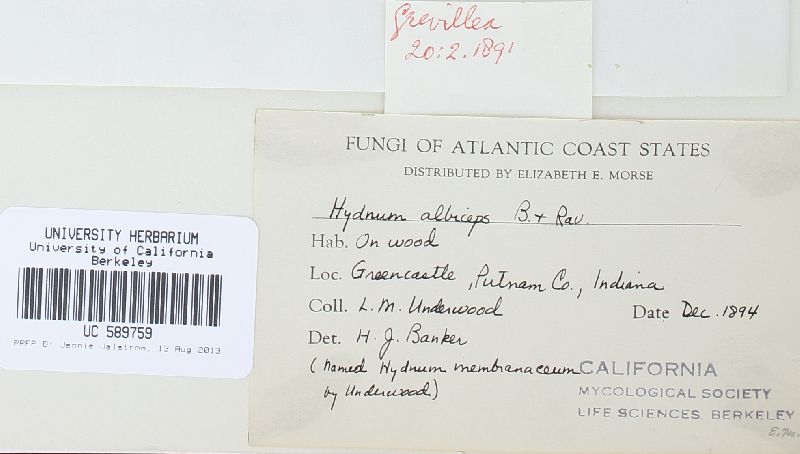 Grevillea
20:2.1891
FUNGI OF ATLANTIC COAST STATES
DISTRIBUTED BY ELIZABETH E. MORSE
Hydnum albiceps B. + Rav.
Hab. On wood
Loc. Greencastle, Putnam Co., Indiana
Coll. L. M. Underwood Date Dec. 1894
Det. H. J. Banker
(named Hydnum membranaceum
by Underwood)
CALIFORNIA
MYCOLOGICAL SOCIETY
LIFE SCIENCES, BERKELEY
E.M.
UNIVERSITY HERBARIUM
University of California
Berkeley
UC 589759
PREP BY Jennie Jalstrom, 13 Aug 2013